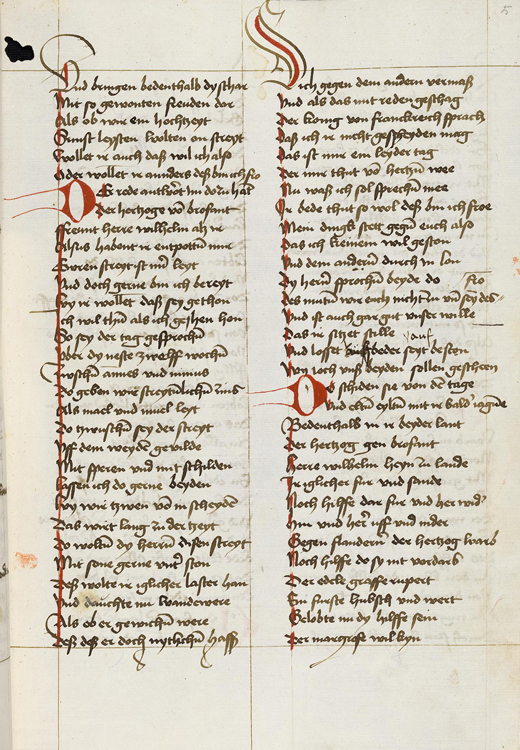 5
Und bringen bedenthalb dy schar
Mit so gewonten freuden dar
Als ob war ein hochzeyt
Sunst leysten wolten on streyt
Wollet ir auch daß wil ich also
Oder wollet ir anders deß bin ich fro
Der rede antwort im do zu hant
Der hertzoge vō brofant
herre wilhelm als ir
habent ir entpotten mir
streyt ist mir leyt
Und doch gerne bin ich bereyt
wollet daß sey gethon
Ich wil thun als ich gesehen hon
So sey der tag gesprochen
Oder dy neste zwelff wochen
Zwischen annes und
Do geben wir
Als macl und
Do zwuschen sey der streyt
Uff dem weyden gevilde
Mit speren und mit schilden
Lassen ich do gerne beyden
wir zwen von scheyden
Das wirt lang zu der zeyt
Do wollen dy herren disen streyt
Mit sone gerne ston
Deß wolte ir iglicher laster han
Und dauchte im wandewere
Als ob er gewichen were
Deß deß er doch hass
Sich gegen dem andern vermaß
Und als das mit reden geschag
Der konig von franckreich sprach
Daß ich ir nicht gescheyden mag
Das ist mir ein leyder tag
Der mir thut vō hertzen wee
Nu waß ich sol sprechen mee
Ir bede thut so wol deß bin ich froe
Mein dingk stett gegen euch also
Das ich keinem wil geston
Und dem andern durch in lon
Dy herrn sprochen beyde do
Des muten wir euch nicht in
Und ist auch gar gut unser wille
Das ir sitzet stille
Und losset auf beder seyt besten
Wen ioch uns beyden sollen gescheen
Do schiden sie von dē tage
Und mit ir
Bedenthalb in ir beyder lant
Der hertzog gen brofant
Herre wilhelm heyn zu lande
Ir iglicher fur und sande
Noch hilffe dar fur und her wid'
Hin und her uff und nider
Gegen flandern der hertzog warb
Noch hilfe do
Der edele graffe rupert
Ein furste hubsch und wert
Gelobte im dy hilffe sein
Der margrafe wilkyn